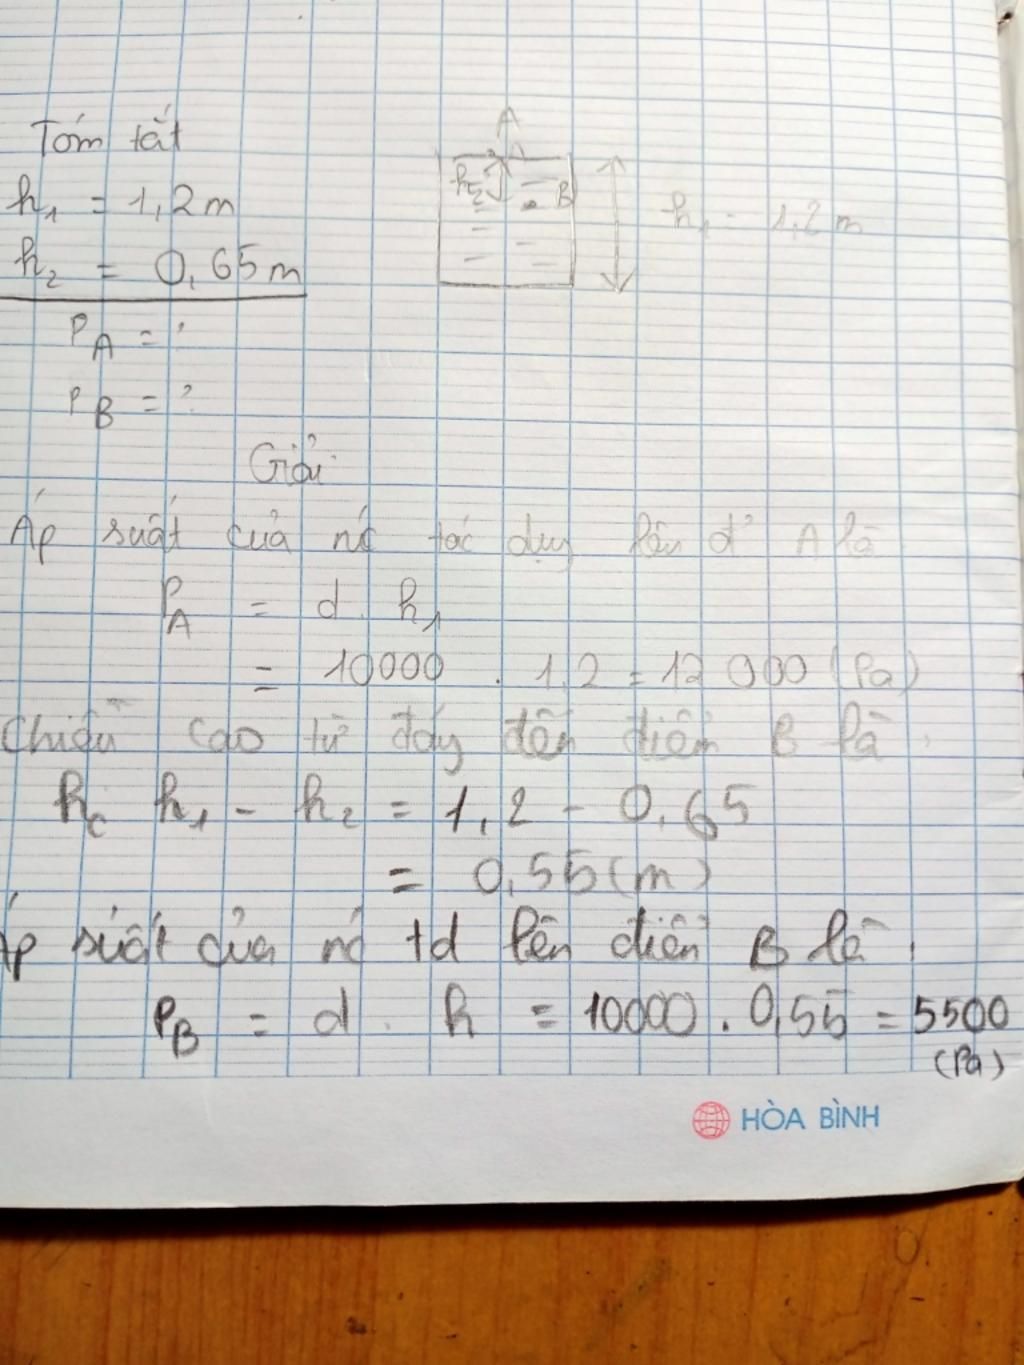 Tóm tắt
A
h₁ = 1,2 m
h₂ B h₁ = 1,2 m
h₂ = 0,65 m
P_A = ?
P_B = ?
Giải
Áp suất của nc tác dụng lên đ' A là
P_A = d . h₁
= 10000 . 1,2 = 12 000 (Pa)
Chiều cao từ đáy đến điểm B là
h₁ - h₂ = 1,2 - 0,65
= 0,55 (m)
Áp suất của nc td lên điểm B là
P_B = d . h = 10000 . 0,55 = 5500
(Pa)
HÒA BÌNH